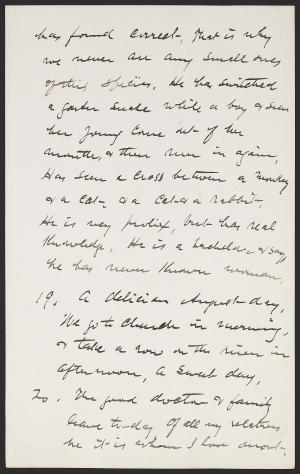 has found correct. That is why
we never see any small ones
of this species. He has switched
a garter snake while a boy & seen
her young come out of her
mouth, & then run in again.
Has seen a cross between a monkey
& a cat, & a cat & a rabbit.
He is very prolix, but has real
knowledge. He is a bachelor & says
he has never known woman.
19. A delicious August day,
We go to church in morning,
& take a row on the river in
afternoon, a sweet day.
20. The good doctor & family
leave to-day. Of all my relatives
he it is whom I love most.